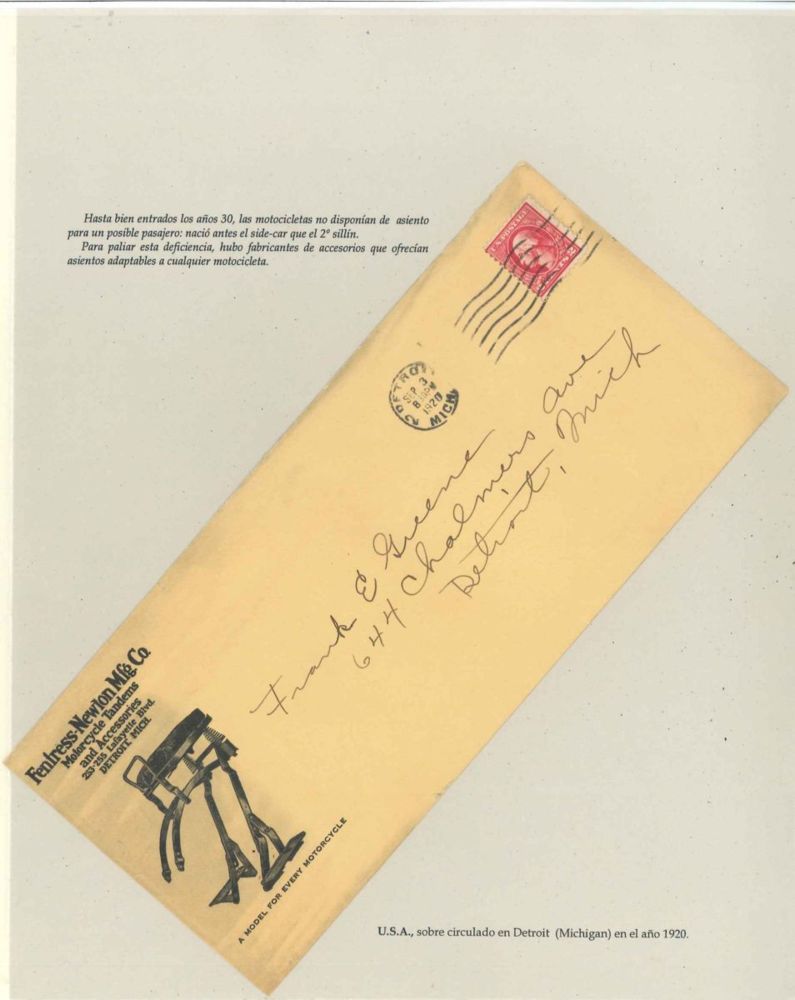 Hasta bien entrados los años 30, las motocicletas no disponían de asiento
para un posible pasajero: nació antes el side-car que el 2º sillín.
Para paliar esta deficiencia, hubo fabricantes de accesorios que ofrecían
asientos adaptables a cualquier motocicleta.
U.S. POSTAGE
CENTS 2
DETROIT
SEP 3
8 PM
1920
MICH
Frank E Greene
644 Chalmers ave
Detroit, Mich
Fentress-Newton Mfg Co.
Motorcycle Tandems
and Accessories
253-255 Lafayette Blvd.
DETROIT MICH.
A MODEL FOR EVERY MOTORCYCLE
U.S.A., sobre circulado en Detroit (Michigan) en el año 1920.